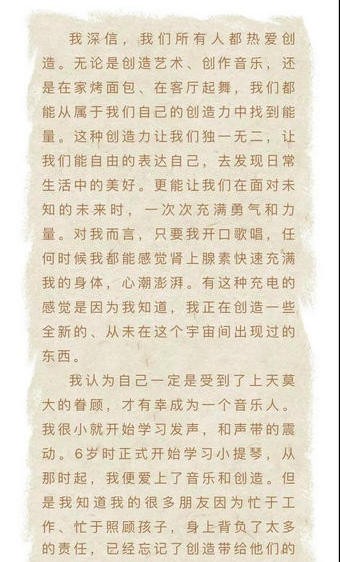 我深信，我们所有人都热爱创
造。无论是创造艺术、创作音乐，还
是在家烤面包、在客厅起舞，我们都
能从属于我们自己的创造力中找到能
量。这种创造力让我们独一无二，让
我们能自由的表达自己，去发现日常
生活中的美好。更能让我们在面对未
知的未来时，一次次充满勇气和力
量。对我而言，只要我开口歌唱，任
何时候我都能感觉肾上腺素快速充满
我的身体，心潮澎湃。有这种充电的
感觉是因为我知道，我正在创造一些
全新的、从未在这个宇宙间出现过的
东西。
我认为自己一定是受到了上天莫
大的眷顾，才有幸成为一个音乐人。
我很小就开始学习发声，和声带的震
动。6岁时正式开始学习小提琴，从
那时起，我便爱上了音乐和创造。但
是我知道我的很多朋友因为忙于工
作、忙于照顾孩子，身上背负了太多
的责任，已经忘记了创造带给他们的